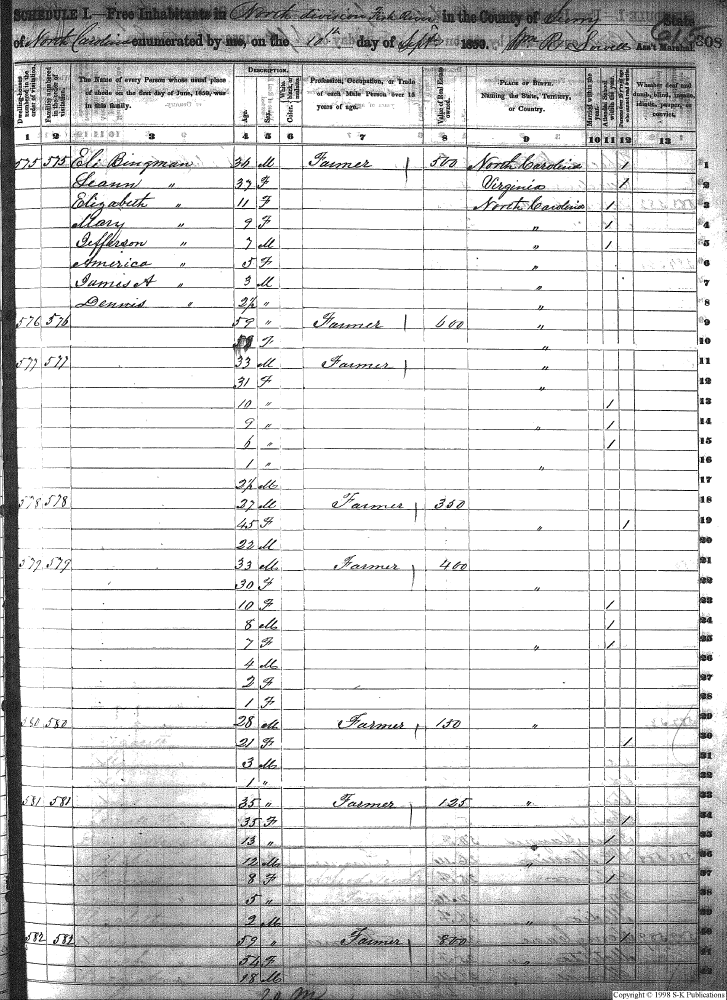 SCHEDULE I.—Free Inhabitants in North division Fish River in the County of Surry State
of North Carolina enumerated by me, on the 10th day of Sept 1850. Wm R. Ass't Marshal. 308
DESCRIPTION.
The Name of every Person whose usual place of abode on the first day of June, 1850, was in this family.
Age. Sex. Profession, Occupation, or Trade of each Male Person over 15 years of age. Value of Real Estate owned. PLACE OF BIRTH. Naming the State, Territory, or Country. Whether deaf and dumb, blind, insane, idiotic, pauper, or convict.
1 2 3 4 5 6 7 8 9 10 11 12 13
575 575 Eli Bingman 36 M Farmer 500 North Carolina 1 1
Leann " 37 F Virginia 1 2
Elizabeth " 11 F North Carolina 1 3
Mary " 9 F " 1 4
Jefferson " 7 M " 1 5
America " 5 F " 6
James A " 3 M " 7
Dennis " " " 8
576 576 59 " Farmer 400 " 9
F " 10
577 577 33 M Farmer " 11
31 F " 12
10 " 1 13
9 " " 1 14
6 " 1 15
1 " " 16
M 17
578 578 27 M Farmer 350 18
45 F " 1 19
22 M 20
579 579 33 M Farmer 400 21
30 F " 22
10 F 1 23
8 M 1 24
7 F " 1 25
4 M 26
2 F 27
1 F 28
580 580 28 M Farmer 150 " 29
21 F 1 30
3 M 31
1 " 32
581 581 35 " Farmer 125 " 33
35 F 1 34
13 " 1 35
12 M " 1 36
8 F 1 37
5 " 38
2 M " 39
582 582 59 " Farmer 800 1 40
54 F " 41
18 M 42
Copyright © 1998 S-K Publications